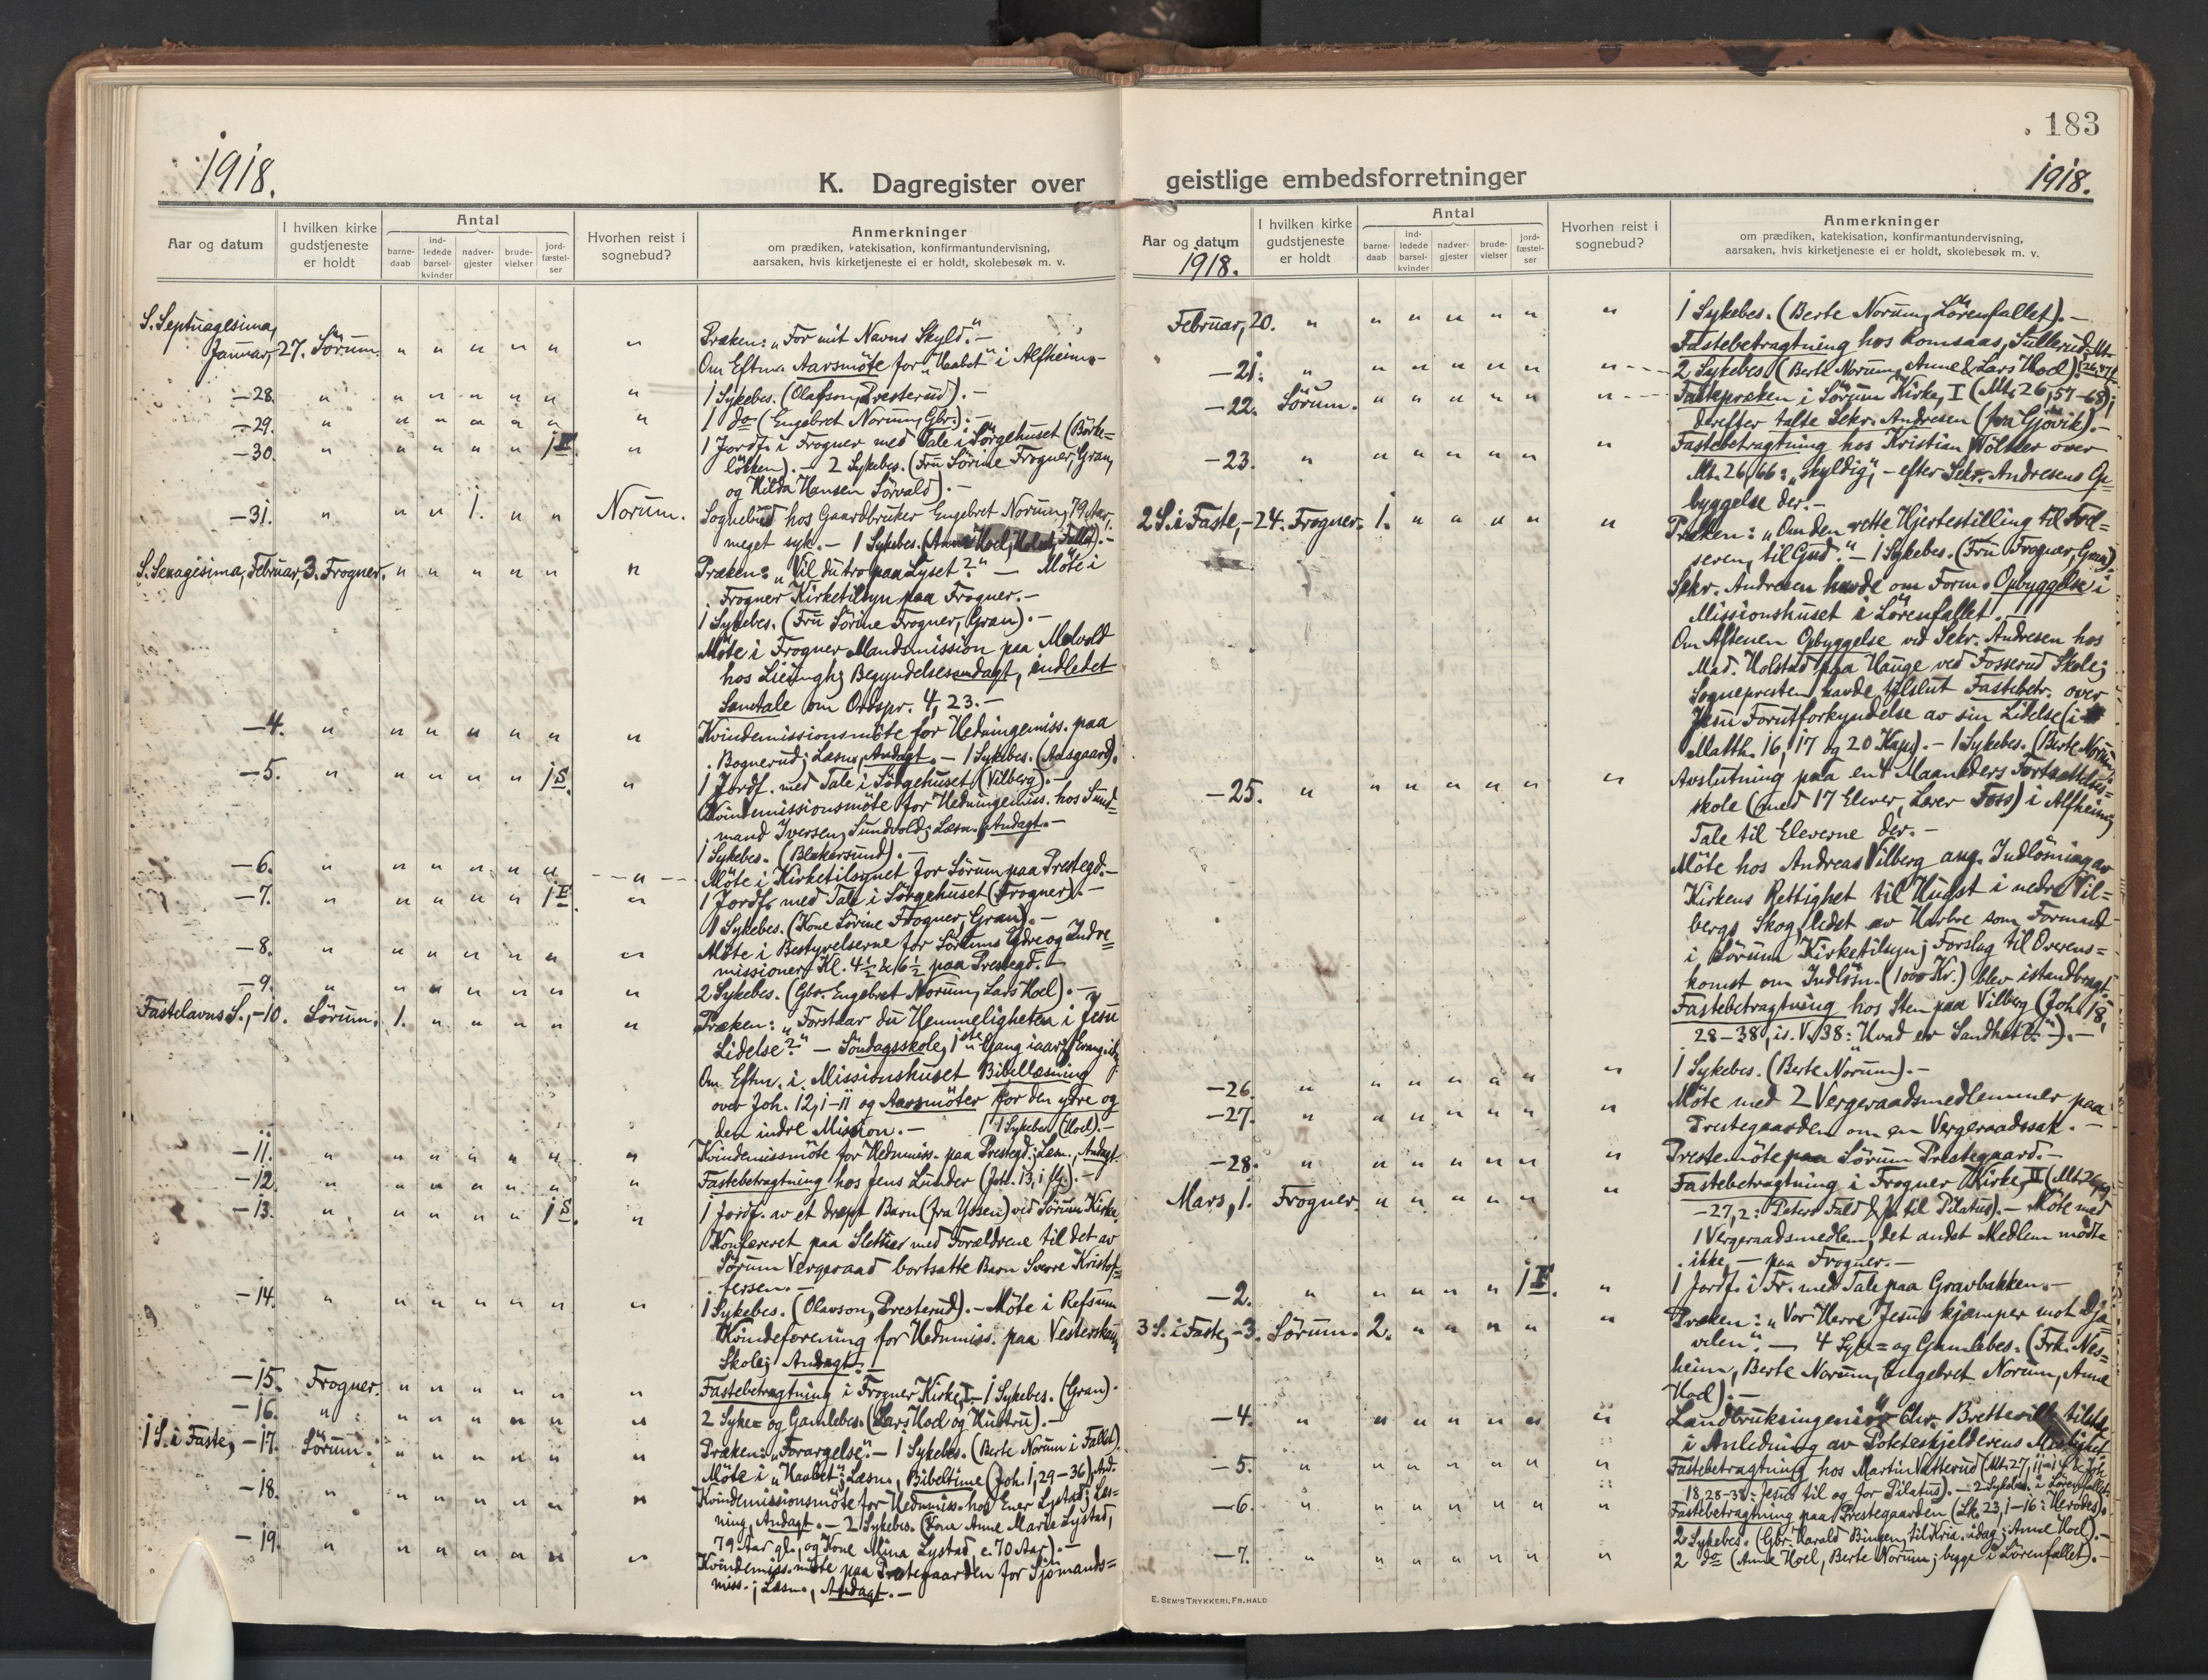 1918.
K. Dagregister over
Aar og datum
I hvilken kirke gudstjeneste er holdt
Antal
barne-daab
ind-ledede barsel-kvinder
nadver-gjester
brude-vielser
jord-fæstel-ser
Hvorhen reist i sognebud?
Anmerkninger
om prædiken, katekisation, konfirmantundervisning,
aarsaken, hvis kirketjeneste ei er holdt, skolebesøk m. v.
S. Septuagesima,
Januar, 27. Sörum. " " " " " " Præken: „For mit Navns Skyld." –
Om Eftm. Aarsmöte for „Haabet" i Alfheim. –
–28. " " " " " " " 1 Sykebes. (Olafson, Presterud). –
–29. " " " " " " " 1 do (Engebret Norum, Gbr.). –
–30. " " " " " 1 F. " 1 Jordf. i Frogner med Tale i Sörgehuset (Börke=
lökken). – 2 Sykebes. (Fru Sörine Frogner, Gran,
og Hilda Hansen Sörvald). –
–31. " " " 1. " " Norum. Sognebud hos Gaardbruker Engebret Norum, 79 Aar,
meget syk. – 1 Sykebes. (Anne Hoel,
S. Sexagesima, Februar, 3. Frogner. " " " " " " Præken: „Vil du tro paa Lyset?" – Möte i
Frogner Kirketilsyn paa Frogner. –
1 Sykebes. (Fru Sörine Frogner, Gran). –
Möte i Frogner Mandsmission paa Melvold
hos Lieungh; Begyndelsesandagt, indledet
Samtale om Ordspr. 4, 23. –
–4. " " " " " " " Kvindemissionsmöte for Hedningemiss. paa
Bognerud; Læsn., Andagt. – 1 Sykebes. (Aalsgaard).
–5. " " " " " 1 S. " 1 Jordf. med Tale i Sörgehuset (Vilberg). –
Kvindemissionsmöte for Hedningemiss. hos Sund=
mand Iversen, Sundvold; Læsn., Andagt. –
1 Sykebes. (Blakersund). –
–6. " " " " " " " Möte i Kirketilsynet for Sörum paa Prestegd. –
–7. " " " " " 1 F. " 1 Jordf. med Tale i Sörgehuset (Frogner). –
1 Sykebes. (Kone Sörine Frogner, Gran). –
–8. " " " " " " " Möte i Bestyrelserne for Sörums Ydre og Indre
missioner Kl. 4½ & 6½ paa Prestegd. –
–9. " " " " " " " 2 Sykebes. (Gbr. Engebret Norum, Lars Hoel). –
Fastelavns S., –10. Sörum. 1. " " " " " Præken: „Forstaar du Hemmeligheten i Jesu
Lidelse?" – Söndagsskole, 1ste Gang iaar,
Om Eftm. i Missionshuset Bibellæsning
over Joh. 12, 1–11 og Aarsmöter for den ydre og
den indre Mission. – 1 Sykebes. (Hoel). –
–11. " " " " " " " Kvindemissmöte for Hednmiss. paa Prestegd.; Læsn., Andagt.
–12. " " " " " " " Fastebetragtning hos Jens Lunder (Joh. 13, 1 flg.). –
–13. " " " " " 1 S. " 1 Jordf. av et dræpt Barn (fra Yssen) ved Sörum Kirke.
Konfereret paa Sletner med Forældrene til det av
Sörum Vergeraad bortsatte Barn Sverre Kristof=
fersen. –
–14. " " " " " " " 1 Sykebes. (Olavson, Presterud). – Möte i Refsum
Kvindeforening for Hednmiss. paa Vesterskaun
Skole; Andagt. –
–15. Frogner. " " " " " " Fastebetragtning i Frogner Kirke, I. – 1 Sykebes. (Gran).
–16. " " " " " " " 2 Syke= og Gamlebes. (Lars Hoel og Hustru). –
1 S. i Faste, –17. Sörum. " " " " " " Præken: „Forargelse". – 1 Sykebes. (Berte Norum i Fallet).
Möte i „Haabet"; Læsn., Bibeltime (Joh. 1, 29–36), And.
–18. " " " " " " " Kvindemissionsmöte for Hednmiss. hos Ener Lystad; Læs=
ning, Andagt. – 2 Sykebes. (Kone Anne Marie Lystad,
79 Aar gl., og Kone Mina Lystad c. 70 Aar). –
–19. " " " " " " " Kvindemiss.möte paa Prestegaarden for Sjömands=
miss.; Læsn., Andagt. –
183
1918.
geistlige embedsforretninger
Aar og datum
1918.
I hvilken kirke gudstjeneste er holdt
Antal
barne-daab
ind-ledede barsel-kvinder
nadver-gjester
brude-vielser
jord-fæstel-ser
Hvorhen reist i sognebud?
Anmerkninger
om prædiken, katekisation, konfirmantundervisning,
aarsaken, hvis kirketjeneste ei er holdt, skolebesøk m. v.
Februar, 20. " " " " " " " 1 Sykebes. (Berte Norum, Lörenfallet). –
Fastebetragtning hos Romsaas, Sullerud, Mt.
–21. " " " " " " " 2 Sykebes. (Berte Norum, Anne & Lars Hoel)
–22. Sörum. " " " " " " Fastepræken i Sörum Kirke, I (Mt. 26, 57–68);
derefter talte Sekr. Andresen (fra Gjövik). –
–23. " " " " " " " Fastebetragtning hos Kristian Wölner over
Mt. 26, 66: „skyldig", – efter Sekr. Andresens Op=
byggelse der. –
2 S. i Faste, –24. Frogner. 1. " " " " " Præken: „Om den rette Hjertestilling til Frel=
seren, til Gud." – 1 Sykebes. (Fru Frogner, Gran).
Sekr. Andresen havde om Form. Opbyggelse i
Missionshuset i Lörenfallet. –
Om Aftenen Opbyggelse ved Sekr. Andresen hos
Mad. Holstad paa Hauge ved Fosserud Skole;
Sognepresten havde tilslut Fastebetr. over
Jesu Forutforkyndelse av sin Lidelse (i
Matth. 16, 17 og 20 Kap.). – 1 Sykebes. (Berte Norum).
–25. " " " " " " " Avslutning paa en 4 Maaneders Fortsættelses=
skole (med 17 Elever, Lærer Foss) i Alfheim;
Tale til Eleverne der. –
Möte hos Andreas Vilberg ang. Indlösning av
Kirkens Rettighet til Hugst i nedre Vil=
bergs Skog, ledet av Harbre som Formand
i Sörum Kirketilsyn; Forslag til Overens=
komst om Indlösn. (1000 Kr.) blev istandbragt.
Fastebetragtning hos Sten paa Vilberg (Joh. 18,
28–38, is. V. 38: „Hvad er Sandhet?" –). –
–26. " " " " " " " 1 Sykebes. (Berte Norum). –
–27. " " " " " " " Möte med 2 Vergeraadsmedlemmer paa
Prestegaarden om en Vergeraadssak. –
–28. " " " " " " " Prestemöte paa Sörum Prestegaard. –
Mars, 1. Frogner. " " " " " " Fastebetragtning i Frogner Kirke, II (Mt. 26,
–27, 2: Peters Fald & J. til Pilatus). – Möte med
1 Vergeraadsmedlem, det andet Medlem mödte
ikke, – paa Frogner. –
–2. " " " " " 1 F. " 1 Jordf. i Fr. med Tale paa Gravbakken. –
3 S. i Faste, –3. Sörum. 2. " " " " " Præken: „Vor Herre Jesus kjæmper mot Djæ=
velen". – 4 Syke= og Gamlebes. (Frk. Nes=
heim, Berte Norum, Engebret Norum, Anne
Hoel). –
–4. " " " " " " " Landbruksingeniör Chr. Bretteville tilstede
i Anledning av Poteteskjelderens
–5. " " " " " " " Fastebetragtning hos Martin Vatterud (Mt. 27, 11–14 & Joh.
18, 28–38: Jesus til og for Pilatus). – 2 Sykebes. i Lörenfallet.
–6. " " " " " " " Fastebetragtning paa Prestegaarden (Lk. 23, 1–16: Herodes).
2 Sykebes. (Gbr. Harald Bingen, til Kria. idag; Anne Hoel). –
–7. " " " " " " " 2 do (Anne Hoel, Berte Norum; begge i Lörenfallet). –
E. SEM'S TRYKKERI, FR. HALD